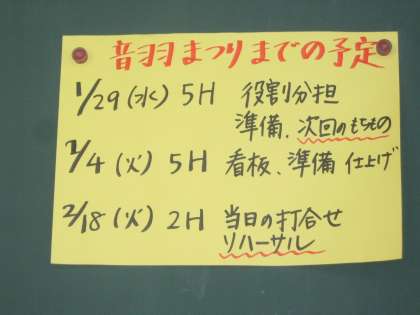 音羽まつりまでの予定
1/29(水) 5H 役割分担
準備、次回のもちもの
2/4(火) 5H 看板、準備 仕上げ
2/18(火) 2H 当日の打合せ
リハーサル